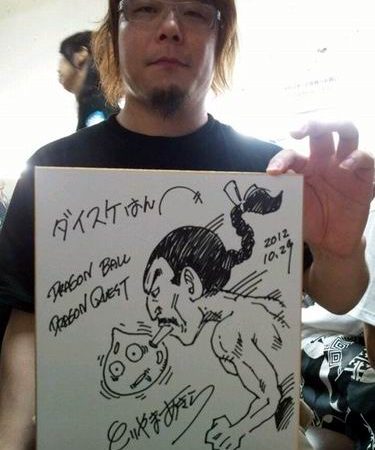 ダイスケはんへ
DRAGON BALL
DRAGON QUEST
2012
10.29
とりやまあきら